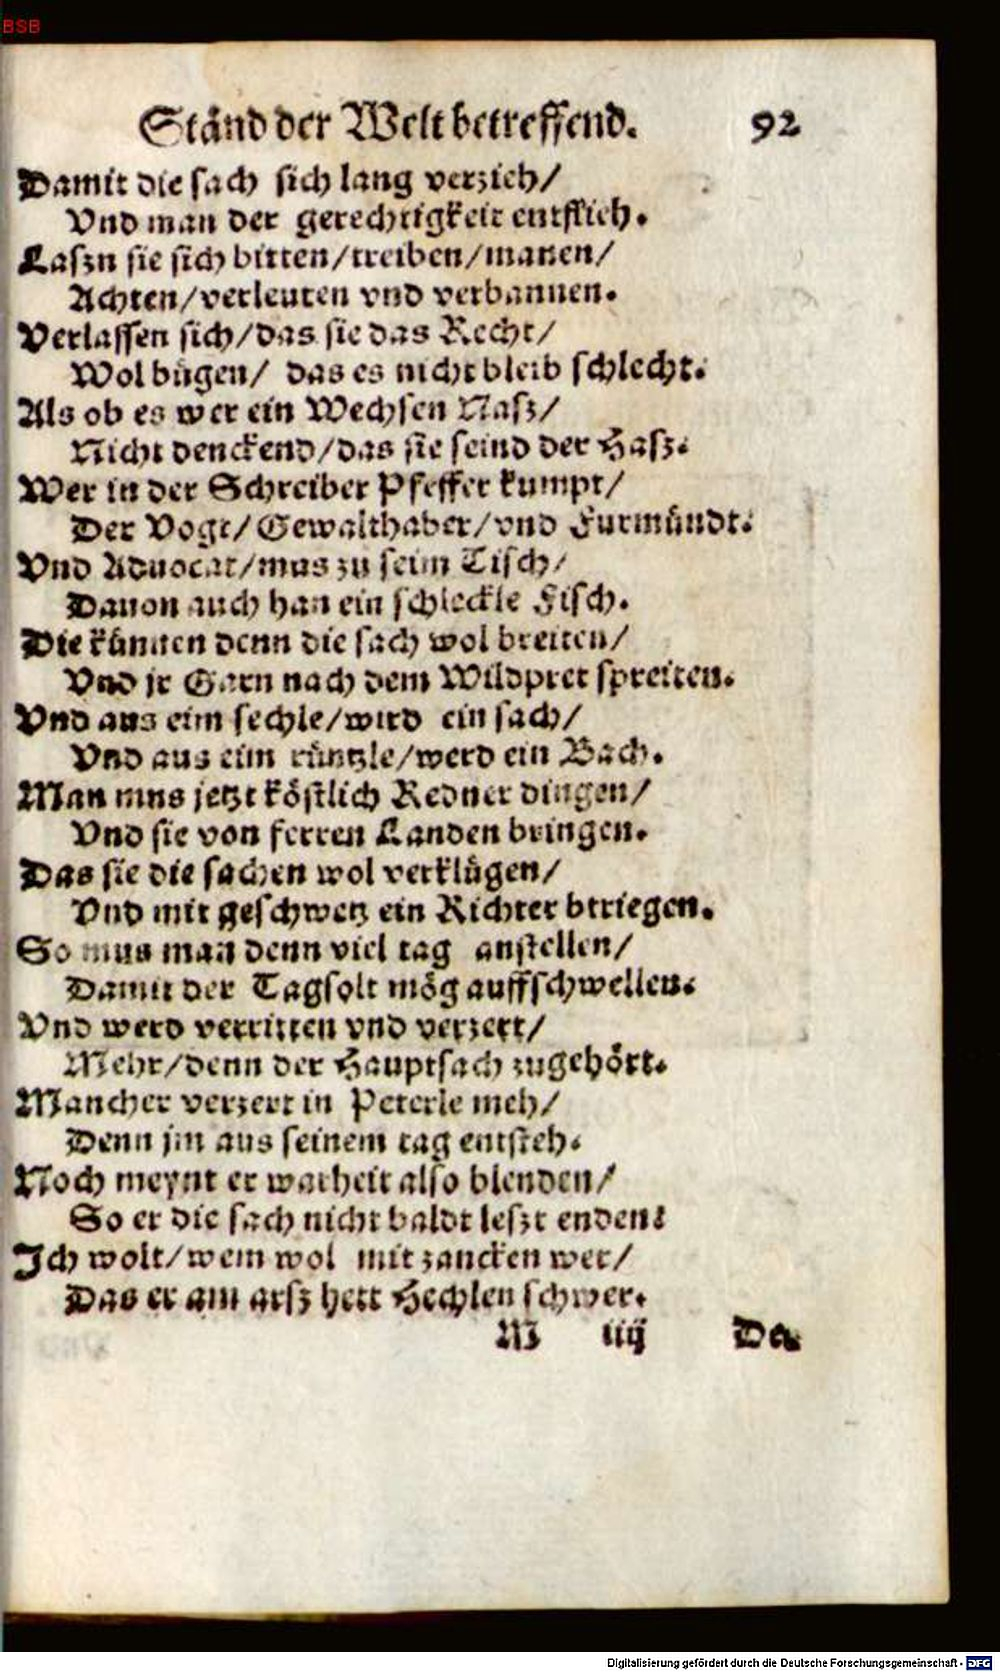 BSB
Stånd der Welt betreffend. 92
Damit die sach sich lang verzieh/
Vnd man der gerechtigkeit entflieh.
Laszn sie sich bitten/treiben/manen/
Achten/verleuten vnd verbannen.
Verlassen sich/das sie das Recht/
Wol bügen/ das es nicht bleib schlecht.
Als ob es wer ein Wechsen Nasz/
Nicht denckend/das sie seind der Hasz.
Wer in der Schreiber Pfeffer kumpt/
Der Vogt/Gewalthaber/vnd Furmündt.
Vnd Aduocat/mus zu seim Tisch/
Dauon auch han ein schleckle Fisch.
Die künnen denn die sach wol breiten/
Vnd jr Garn nach dem Wildpret spreiten.
Vnd aus eim sechle/wird ein sach/
Vnd aus eim rüntzle/werd ein Bach.
Man mus jetzt köstlich Redner dingen/
Vnd sie von ferren Landen bringen.
Das sie die sachen wol verklügen/
Vnd mit geschwetz ein Richter btriegen.
So mus man denn viel tag anstellen/
Damit der Tagsolt mög auffschwellen.
Vnd werd verritten vnd verzert/
Mehr/denn der Hauptsach zugehört.
Mancher verzert in Peterle meh/
Denn jm aus seinem tag entsteh.
Noch meynt er warheit also blenden/
So er die sach nicht baldt leszt enden:
Ich wolt/wem wol mit zancken wer/
Das er am arsz hett Hechlen schwer.
M iiij De
Digitalisierung gefördert durch die Deutsche Forschungsgemeinschaft - DFG